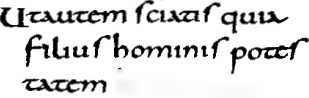 Utautem sciatis quia
filius hominis potes
tatem